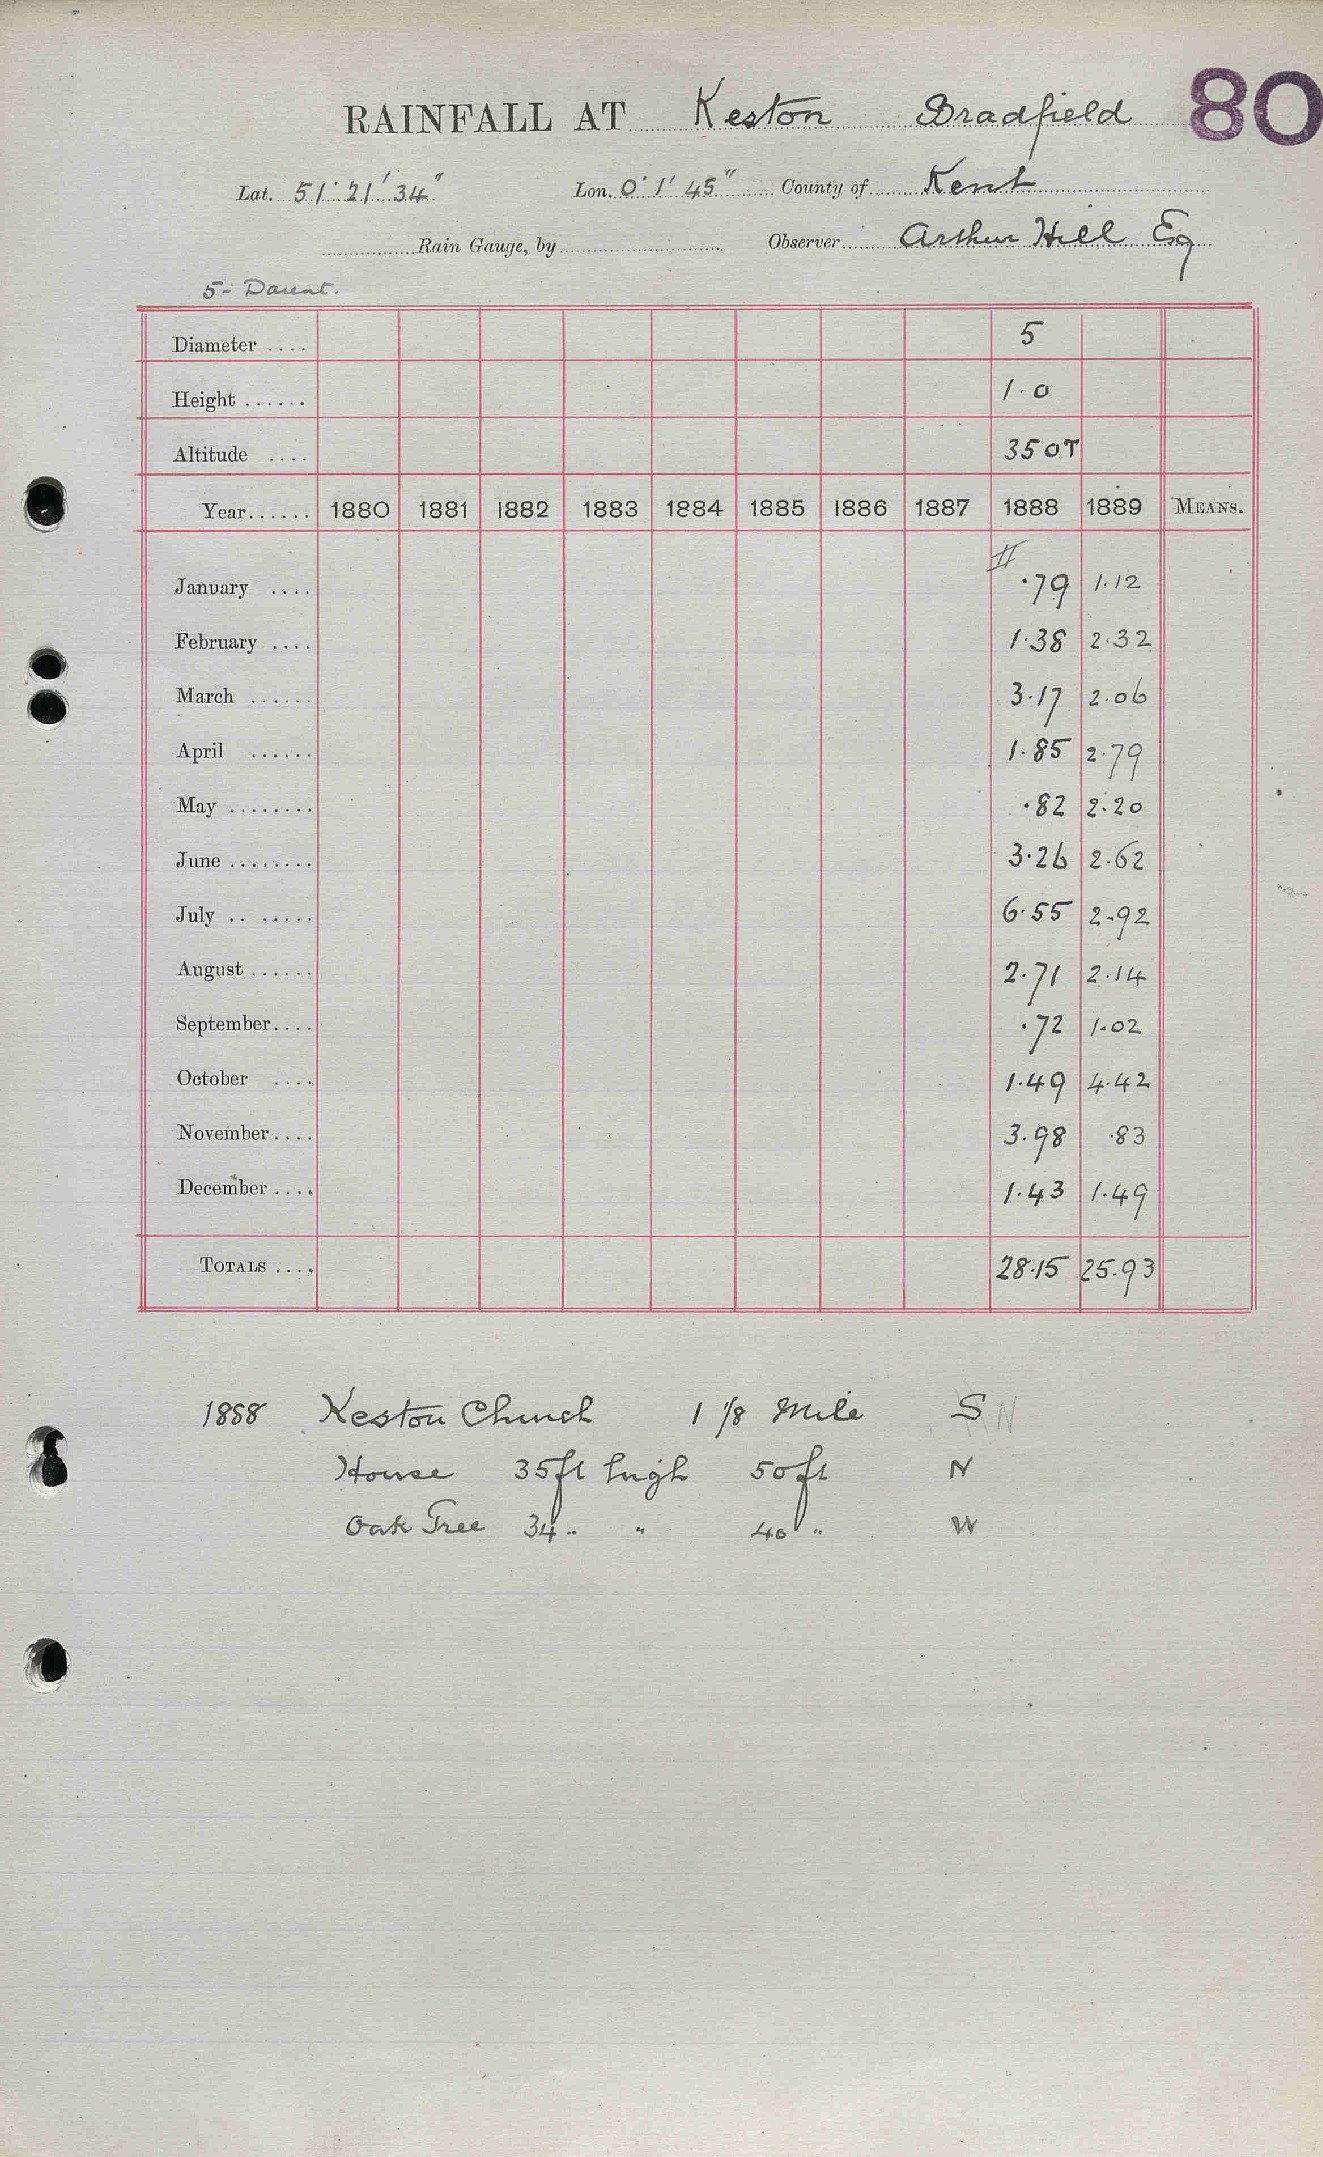 RAINFALL AT Keston Bradfield 80
Lat. 51° 21' 34" Lon. 0° 1' 45" County of Kent
Rain Gauge, by Observer Arthur Hill Esq
5- Darent.
Diameter .... 5
Height ...... 1.0
Altitude .... 350T
Year...... 1880 1881 1882 1883 1884 1885 1886 1887 1888 1889 MEANS.
January .... .79 1.12
February .... 1.38 2.32
March ...... 3.17 2.06
April ...... 1.85 2.79
May ........ .82 2.20
June ........ 3.26 2.62
July .. ...... 6.55 2.92
August ...... 2.71 2.14
September.... .72 1.02
October .... 1.49 4.42
November.... 3.98 .83
December .... 1.43 1.49
TOTALS .... 28.15 25.93
1888 Keston Church 1 1/8 Mile S N
House 35ft high 50ft N
Oak Tree 34 " " 40 " W